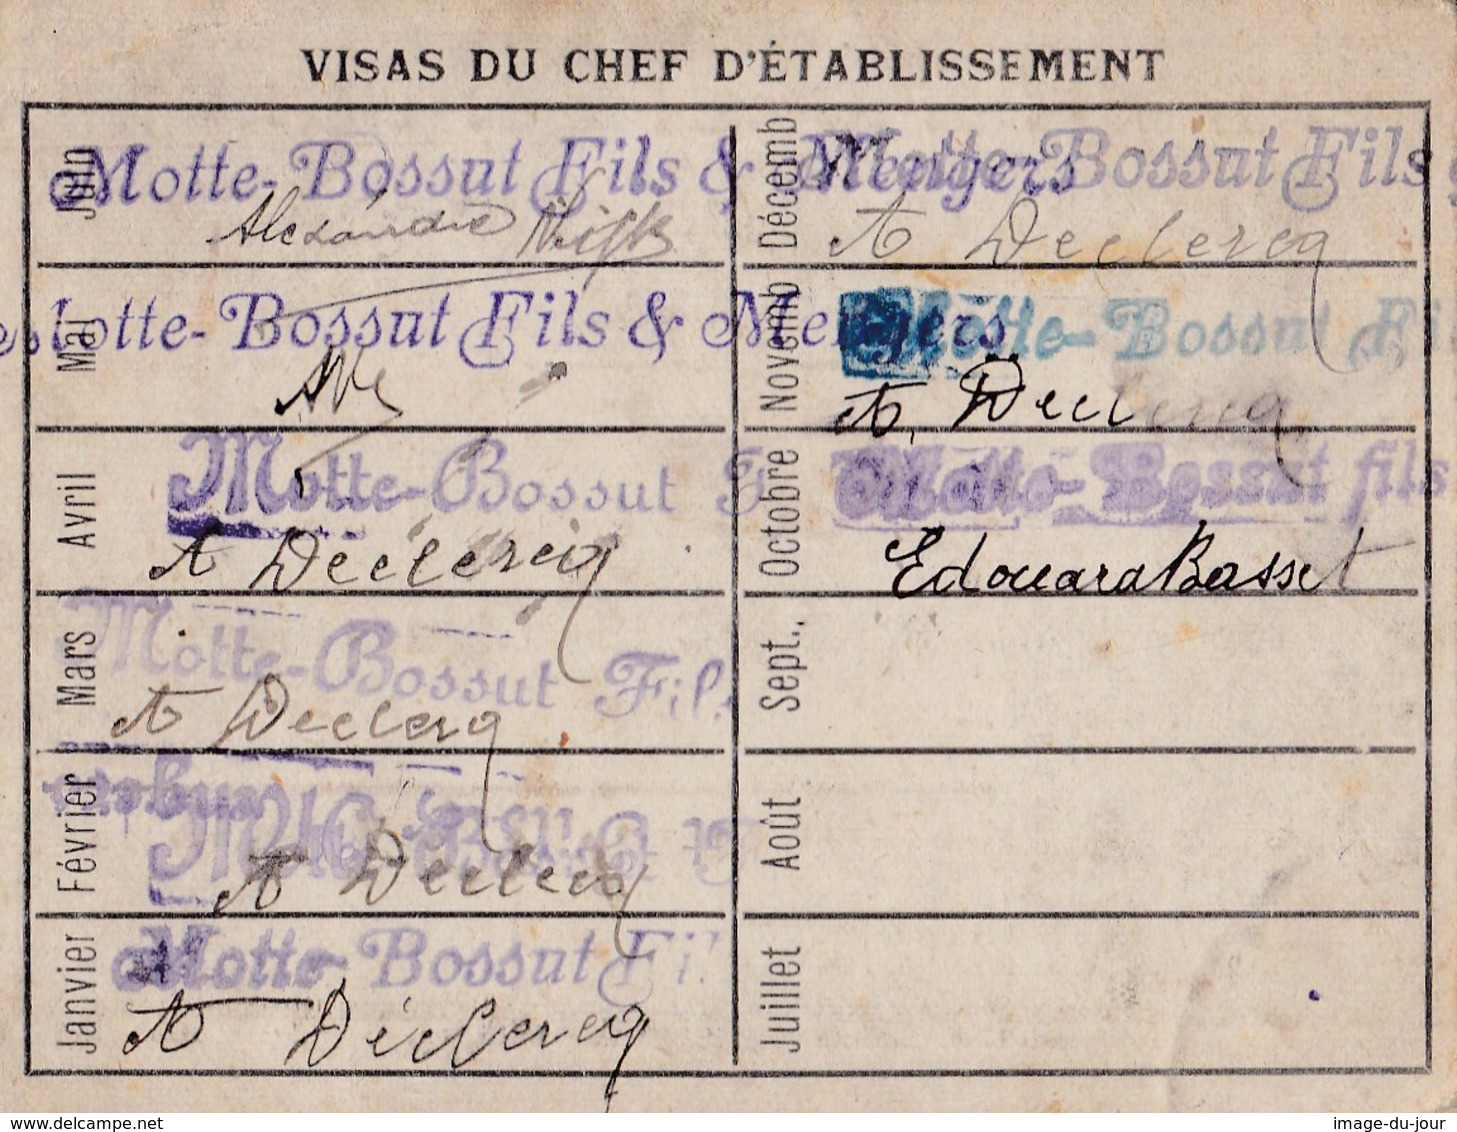 VISAS DU CHEF D'ÉTABLISSEMENT
Juin
Motte-Bossut Fils & Mengers
Alexandre
Mai
Motte-Bossut Fils & Mengers
Avril
Motte-Bossut F
A Declercq
Mars
Motte-Bossut Fils
A Declercq
Février
A Declercq
Janvier
Motte-Bossut Fil
A Déclercq
Décemb
Motte-Bossut Fils &
A Declercq
Novemb
Motte-Bossut Fi
A. Declercq
Octobre
Motte-Bossut fils
Edouard Basset
Sept.,
Août
Juillet
delcampe.net
image-du-jour